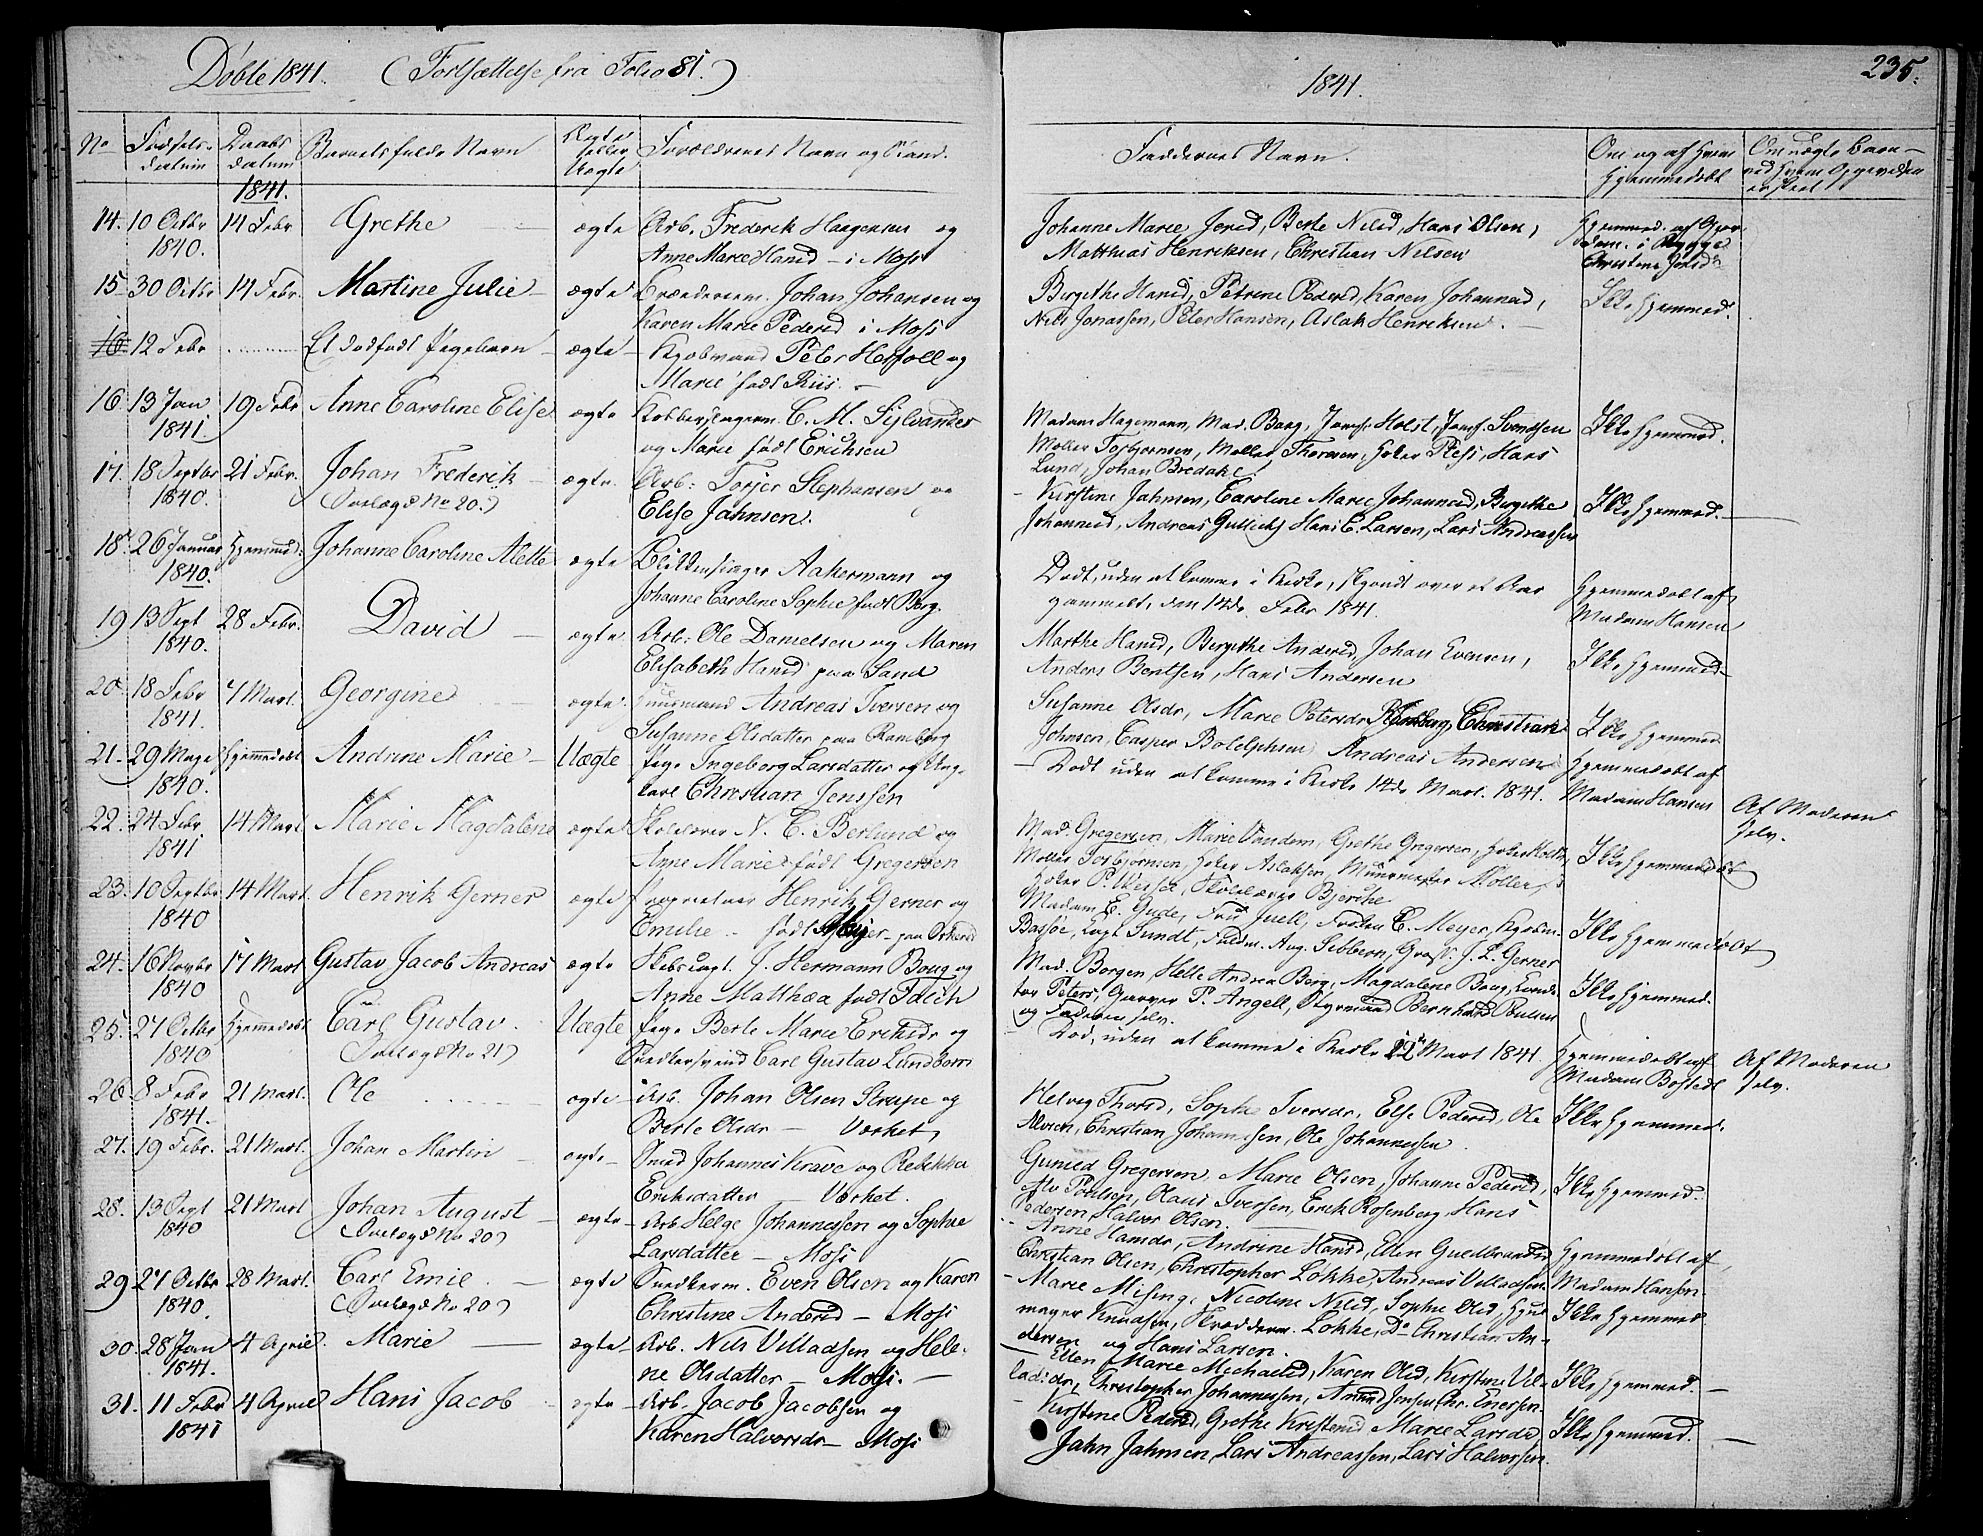 Døbte 1841. (Fortsættelse fra Folio 81.)
1841.
235.
No
Fødsels-
datum
Daabs
datum
Barnets fulde Navn
Ægte
eller
Uægte
Forældrenes Navn og Stand.
Faddernes Navn.
Om og af hvem
hjemmedøbt
1841.
14. 10 Octbr 14 Febr Grethe ægte Arb. Frederik Haagensen og
1840. Anne Marie Hansd – i Moss
Johanne Marie Jensd, Berte Nilsd, Hans Olsen,
Matthias Henriksen, Christian Nilsen
Hjemmed. af
15 30 Octbr 14 Febr. Martine Julie – ægte Johan Johansen og
Karen Marie Pedersd i Moss
Birgithe Hansd, Petrine Pedersd, Karen Johannesd,
Nils Jonassen, Peter Hansen, Aslak Henriksen. –
Ikke hjemmed.
16 12 Febr Et dødfødt Pigebarn – ægte – Kjøbmand Peter Hoffoll og
Marie født Riis. –
16. 13 Jan 19 Febr Anne Caroline Elise ægte Kobberslagerm. C. M. Sylvander
1841. og Marie født Erichsen
Madam Hagemann, Mad. Boug, Jomf. Holst, Jomf. Svendsen
Møller Torbjørnsen, Møller Thoresen, Høker Ress, Hans
Lund, Johan Bredahl.
Ikke hjemmed.
17. 18 Septbr 21 Febr. Johan Frederik – ægte. Arb: Torjer Stephansen og
1840. (Overlagd No 20.) Elise Jahnsen.
Kirstine Jahnsen, Caroline Marie Johannesd, Birgithe
Johannesd, Andreas Gullichs, Hans C. Larsen, Lars Andreassen
Ikke hjemmed. –
18. 26 Januar Hjemmed: Johanne Caroline Alette ægte Blikkenslager Aakermann og
1840. Johanne Caroline Sophie født Berg.
Dødt, uden at komme i Kirke, skjøndt over et Aar
gammelt, den 14de Febr 1841.
Hjemmedøbt af
Madam Hansen
19 13 Sept 28 Febr. David – ægte Arb: Ole Danielsen og Maren
1840. Elisabeth Hansd paa Sand
Marthe Hansd, Birgithe Andersd, Johan Evensen,
Anders Berntsen, Hans Andersen
Ikke hjemmed –
20. 18 Febr 7 Mart. Georgine ægte Huusmand Andreas Iversen og
1841. Susanne Olsdatter paa Ramberg
Susanne Olsdr, Marie Petersdr Christian
Johnsen, Casper Bolelphsen, Andreas Andersen
Ikke hjemmed
21. 29 Maji Hjemmedøbt Andrine Marie – Uægte Pige Ingeborg Larsdatter og Ung-
1840. karl Christian Jenssen
– Dødt uden at komme i Kirke 14de Mart. 1841.
Hjemmedøbt af
Madam Hansen
22. 24 Febr 14 Mart Marie Magdalene ægte Skolelærer N. C. Berlund og
1841 Anne Marie født Gregersen
Mad. Gregersen, Marie Vandem, Grethe Gregersen,
Møller Torbjørnsen, Høker Aslaksen, Muurmester Møller,
Ikke hjemmedøbt
Af Moderen
selv.
23. 10 Septbr 14 Mart. Henrik Gerner ægte Henrik Gerner og
1840 Emilie – født Meyer – paa
Madam E. Gude, Fru Juell, Frøken C. Meyer, Kjøbm.
Bassøe, Sundt, Aug. Sibbern, J. L. Gerner
Ikke hjemmedøbt
24. 16 Novbr 17 Mart Gustav Jacob Andreas ægte Skibscapt. J. Hermann Boug og
1840 Anne Matthea født Falch
Mad. Borgen, Helle Andrea Berg, Magdalene Boug,
Peters, Garver P. Angell, Styrmand Bernhard Poulsen
og Faderen selv.
Ikke hjemmed.
25. 27 Octbr Hjemmedøbt Carl Gustav. Uægte Pige Berte Marie Ericksdr og
1840 (Overlagd No 21) Snedkersvend Carl Gustav Lundborn
– Død, uden at komme i Kirke 22 Mart 1841.
Hjemmedøbt af
Madam Bofstedt
Af Moderen
selv.
26. 8 Febr 21 Mart. Ole ægte – Arb. Johan Olsen Strupe og
1841. Berte Olsdr – Værket
Helvig Thorsd, Sophie Iversdr, Else Pedersd, Ole
Alvsen, Christian Johannesen, Ole Johannessen.
Ikke hjemmed.
27. 19 Febr. 21 Mart. Johan Martin – ægte – Smed Johannes Krave og Rebekka
Eriksdatter – Værket.
Gunild Gregersen, Marie Olsen, Johanne Pedersd,
Alv Poulsen, Olaus Iversen, Erik Rosenberg, Hans
Pedersen, Halvor Olsen.
Ikke hjemmed.
28. 13 Sept 21 Mart Johan August – ægte – Arb Helge Johannessen og Sophie
1840 (Overlagd No 20) Larsdatter – Moss
Anne Hansdr, Andrine Hansd, Ellen Guldbrandsd
Christian Olsen, Christopher Løkke, Andreas Villadsen
Hjemmedøbt af
Madam Hansen
29 27 Octbr 28 Mart. Carl Emil. – ægte Snedkerm. Even Olsen og Karen
1840. (Overlagd No 20) Christine Andersd – Moss
– Marie Mising, Nicoline Nilsd, Sophie Olsd, Hjul-
mager Knudsen, Skrædderm. Løkke, Do Christian An-
dersen og Hans Larsen.
Ikke hjemmed.
30. 28 Jan 4 April. Marie – ægte – Arb. Nils Villadsen og Hele-
1841. ne Olsdatter – Moss. –
– Ellen Marie Michaelsd, Karen Olsd, Kirstine Vil-
ladsdr, Christopher Johannessen, Amund Jensen, Chr. Enersen.
Ikke hjemmed. –
31. 11 Febr 4 April Hans Jacob – ægte – Arb. Jacob Jacobsen og
1841 Karen Halvorsdr – Moss
– Kirstine Pedersd, Grethe Kristensd, Marie Larsd
Jahn Jahnsen, Lars Andreassen, Lars Halvorsen.
Ikke hjemmed. –